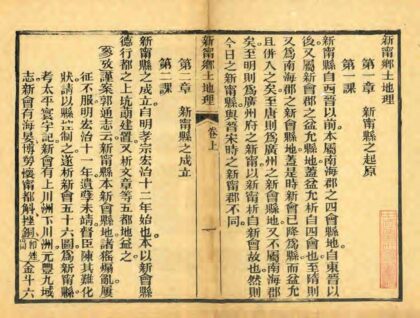 新甯鄉土地理
第一章　新甯縣之起原
第一課
新甯縣自西晉以前本屬南海郡之四會縣地自東晉以
後又屬新會郡之盆允縣地蓋盆允析自四會也至隋則
又為南海郡之新會縣地蓋是時新會已降為縣而盆允
且併入之矣至唐則為廣州之新會縣地又不屬南海郡
矣至明則為廣州府之新甯以新甯析自新會故也然則
今日之新甯縣與晉宋時之新甯郡不同
新甯鄉土地理
卷上
一
第二章　新甯縣之成立
第二課
新甯縣之成立自明孝宗宏治十二年始也本以新會縣
德行都之上坑蓢建置又析文章等五都地益之
參攷謹案郭通志云新甯縣本新會縣地諸猺煽亂屢
征不服明宏治十一年遺孽未靖督臣陳其難化
狀請以縣治制之遂析新會五十六圖為新甯縣
考太平寰宇記新會有上川洲下川洲元豐九域
志新會有海晏博勞懷甯都斛挫銅金斗六